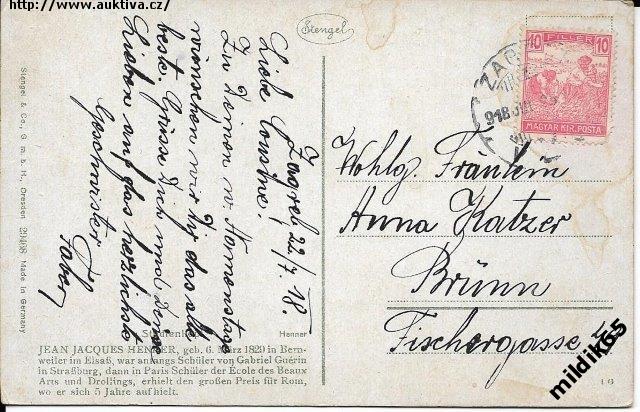 http://www.auktiva.cz/
Stengel
Zagreb, 22/7. 18.
Liebe Cousine!
Zu Deinem w. Namenstage
wünschen wir Dir das aller
beste. Grüsse Dich und Deine
Lieben auf das herzlichste
Geschwister
Stengel & Co., G. m. b. H., Dresden 29408 Made in Germany
10 FILLÉR 10
MAGYAR KIR. POSTA
ZAG
918 JUL
Wohlg. Fräulein
Anna Katzer
Brünn
Fischergasse
Henner
JEAN JACQUES HENNER, geb. 6. März 1829 in Bern-
weiler im Elsaß, war anfangs Schüler von Gabriel Guérin
in Straßburg, dann in Paris Schüler der École des Beaux
Arts und Drollings, erhielt den großen Preis für Rom,
wo er sich 5 Jahre aufhielt.
mildik65